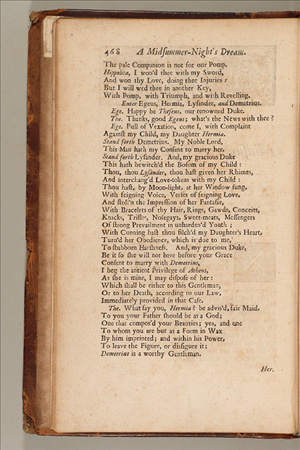 468 A Midsummer-Night's Dream.
The pale Companion is not for our Pomp.
Hippolita, I woo'd thee with my Sword,
And won thy Love, doing thee Injuries:
But I will wed thee in another Key,
With Pomp, with Triumph, and with Revelling.
Enter Egeus, Hermia, Lysander, and Demetrius.
Ege. Happy be Theseus, our renowned Duke.
The. Thanks, good Egeus; what's the News with thee?
Ege. Full of Vexation, come I, with Complaint
Against my Child, my Daughter Hermia.
Stand forth Demetrius. My Noble Lord,
This Man hath my Consent to marry her.
Stand forth Lysander. And, my gracious Duke
This hath bewitch'd the Bosom of my Child:
Thou, thou Lysander, thou hast given her Rhimes,
And interchang'd Love-tokens with my Child:
Thou hast, by Moon-light, at her Window sung,
With feigning Voice, Verses of feigning Love,
And stoll'n the Impression of her Fantasie,
With Bracelets of thy Hair, Rings, Gawds, Conceits,
Knacks, Trifles, Nosegays, Sweet-meats, Messengers
Of strong Prevailment in unharden'd Youth;
With Cunning hast thou filch'd my Daughter's Heart,
Turn'd her Obedience, which is due to me,
To stubborn Harshness. And, my gracious Duke,
Be it so she will not here before your Grace
Consent to marry with Demetrius,
I beg the antient Privilege of Athens,
As she is mine, I may dispose of her:
Which shall be either to this Gentleman,
Or to her Death, according to our Law,
Immediately provided in that Case.
The. What say you, Hermia? be advis'd, fair Maid.
To you your Father should be as a God;
One that compos'd your Beauties; yea, and one
To whom you are but as a Form in Wax
By him imprinted; and within his Power,
To leave the Figure, or disfigure it:
Demetrius is a worthy Gentleman.
Her.